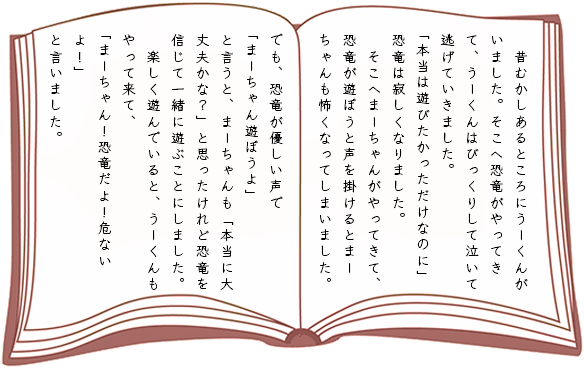 昔むかしあるところにうーくんが
いました。そこへ恐竜がやってき
て、うーくんはびっくりして泣いて
逃げていきました。
「本当は遊びたかっただけなのに」
恐竜は寂しくなりました。
そこへまーちゃんがやってきて、
恐竜が遊ぼうと声を掛けるとまー
ちゃんも怖くなってしまいました。
でも、恐竜が優しい声で
「まーちゃん遊ぼうよ」
と言うと、まーちゃんも「本当に大
丈夫かな？」と思ったけれど恐竜を
信じて一緒に遊ぶことにしました。
楽しく遊んでいると、うーくんも
やって来て、
「まーちゃん！恐竜だよ！危ない
よ！」
と言いました。